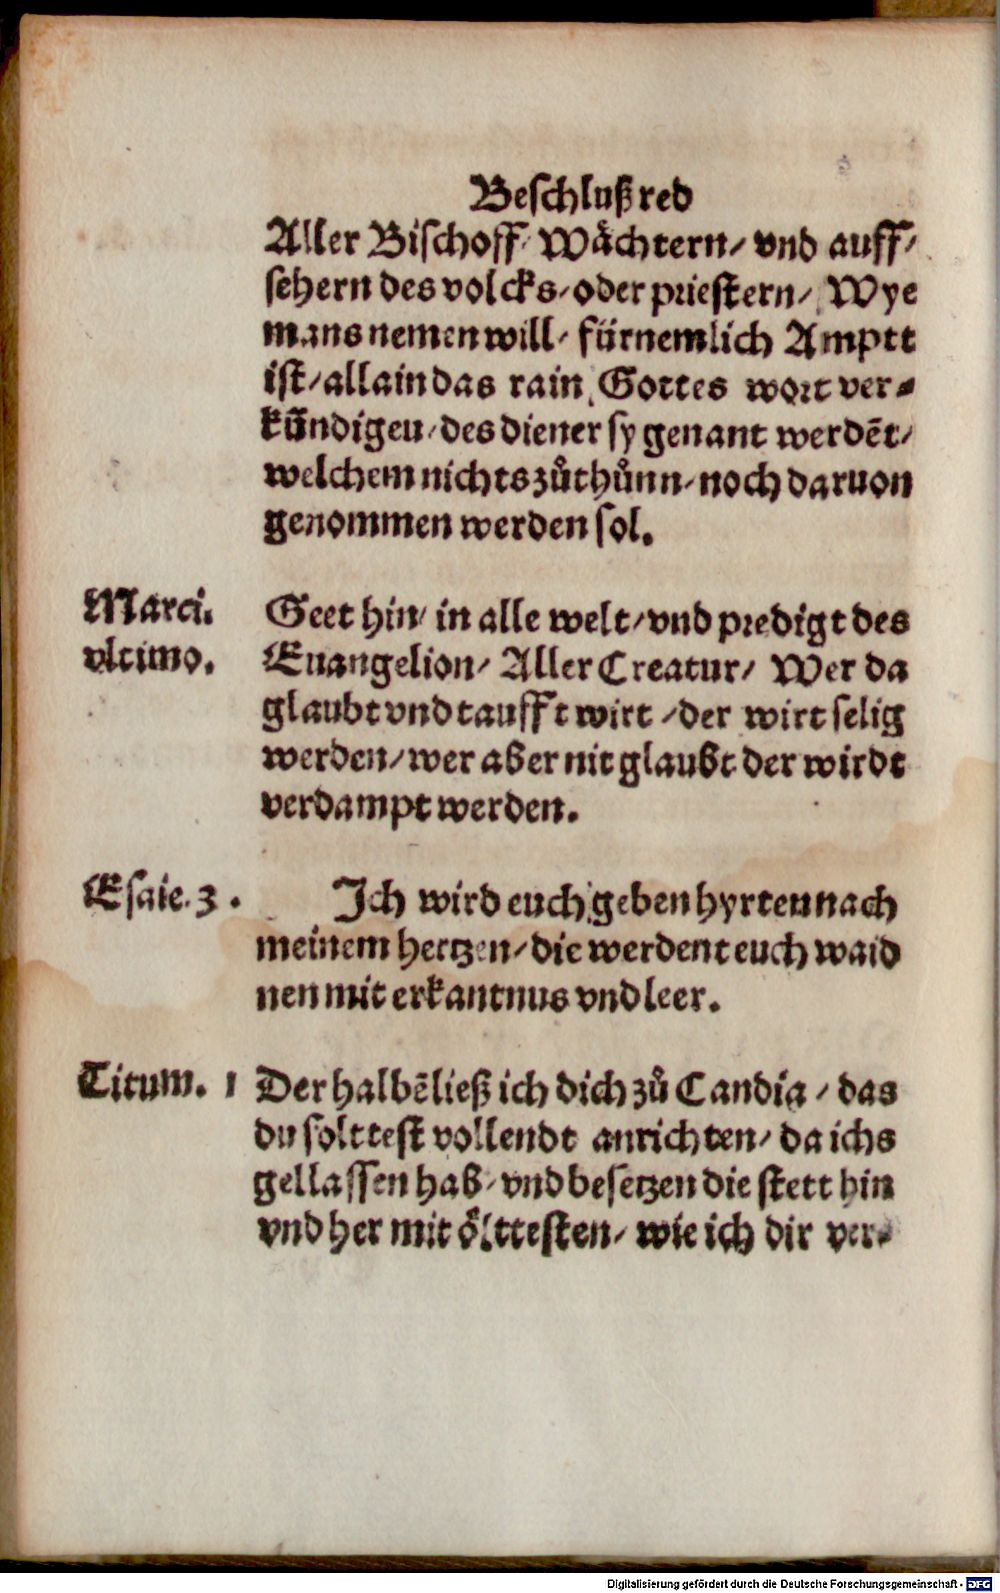 Beschlußred
Aller Bischoff/ Wåchtern/ vnd auff/
sehern des volcks/ oder priestern/ Wye
mans nemen will/ fürnemlich Amptt
ist/ allain das rain Gottes wort ver-
kündigen/ des diener sy genant werdēt/
welchem nichts zůthůnn/ noch daruon
genommen werden sol.
Marci. Geet hin/ in alle welt/ vnd predigt des
vltimo. Euangelion/ Aller Creatur/ Wer da
glaubt vnd taufft wirt/ der wirt selig
werden/ wer aber nit glaubt der wirdt
verdampt werden.
Esaie. 3. Ich wird euch geben hyrten nach
meinem hertzen/ die werdent euch waid
nen mit erkantnus vnd leer.
Titum. 1 Der halbē ließ ich dich zů Candia/ das
du solttest vollendt anrichten/ da ichs
gellassen hab/ vnd besetzen die stett hin
vnd her mit ölttesten/ wie ich dir ver-
Digitalisierung gefördert durch die Deutsche Forschungsgemeinschaft - DFG